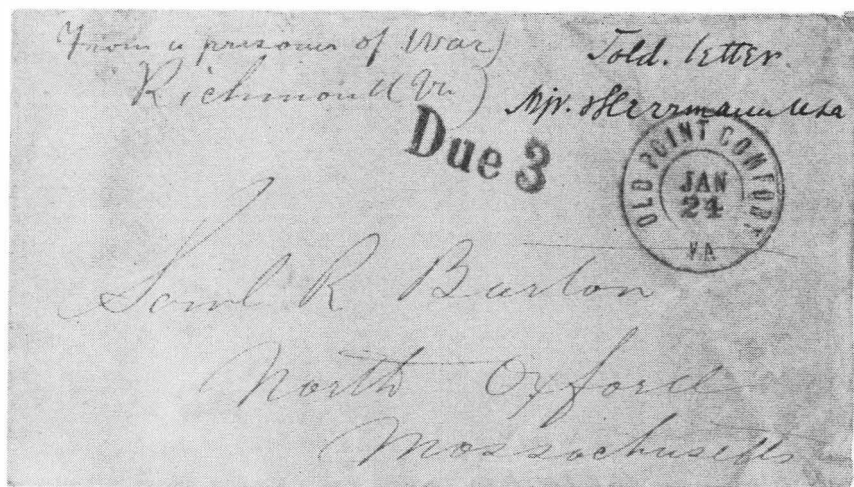 From a prisoner of war)
Richmond Va)
Sold. letter.
Mjr. Herrmann USA
Due 3
OLD POINT COMFORT
JAN
24
VA
Saml R Barton
North Oxford
Massachusetts